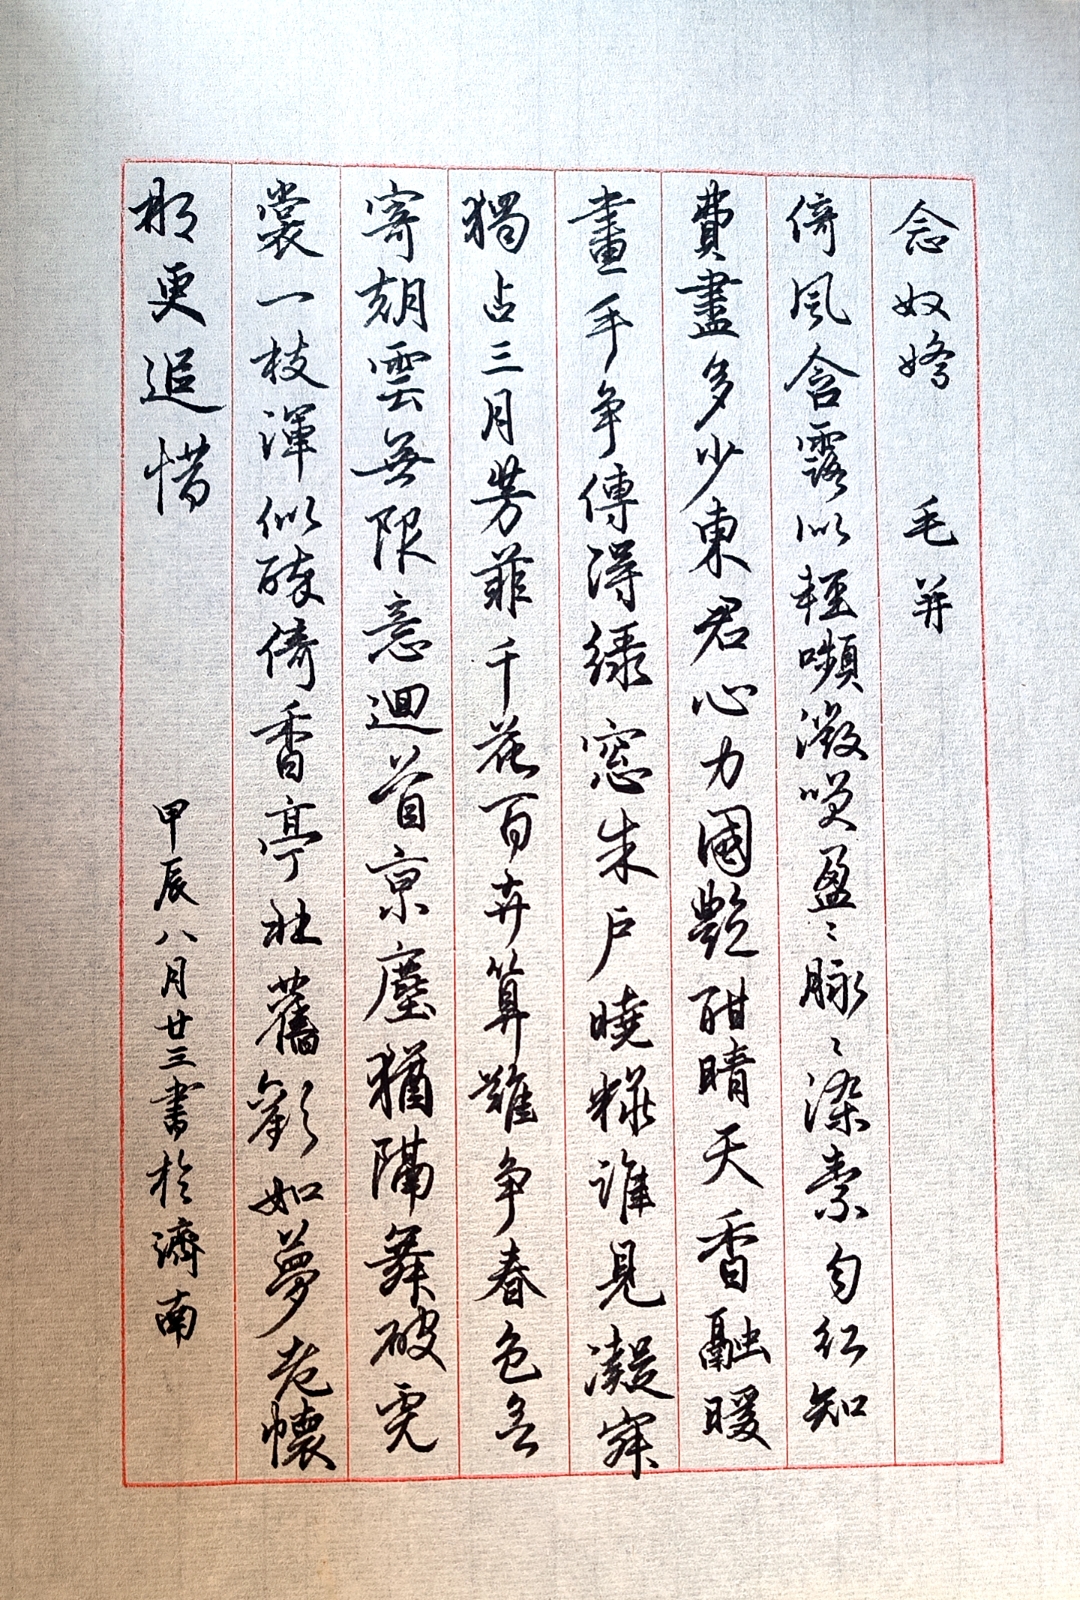 念奴嬌 毛并
倚風含露似輕嚬潋笑盈〻脉〻染素勻紅知
費盡多少東君心力國艷酣晴天香融暖
畫手争傳得緑窓朱戶曉粧誰見凝寂
獨占三月芳菲千花百卉算難争春色
寄朝雲無限意迴首京塵猶隔舞破霓
裳一枝渾似醉倚香亭北舊歡如夢老懷
那更追惜
甲辰八月廿三書於濟南